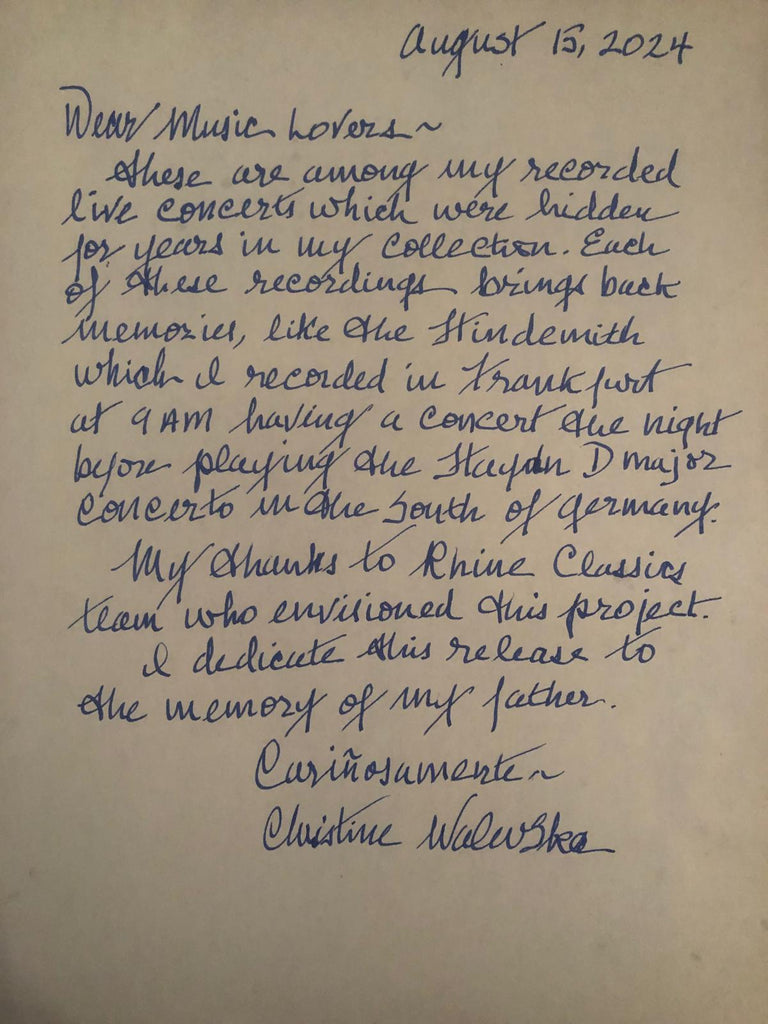 August 15, 2024
Dear Music Lovers~
These are among my recorded
live concerts which were hidden
for years in my collection. Each
of these recordings brings back
memories, like the Hindemith
which I recorded in Frankfurt
at 9 AM having a concert the night
before playing the Haydn D major
concerto in the South of Germany.
My thanks to Rhine Classics
team who envisioned this project.
I dedicate this release to
the memory of my father.
Cariñosamente~
Christine Walevska